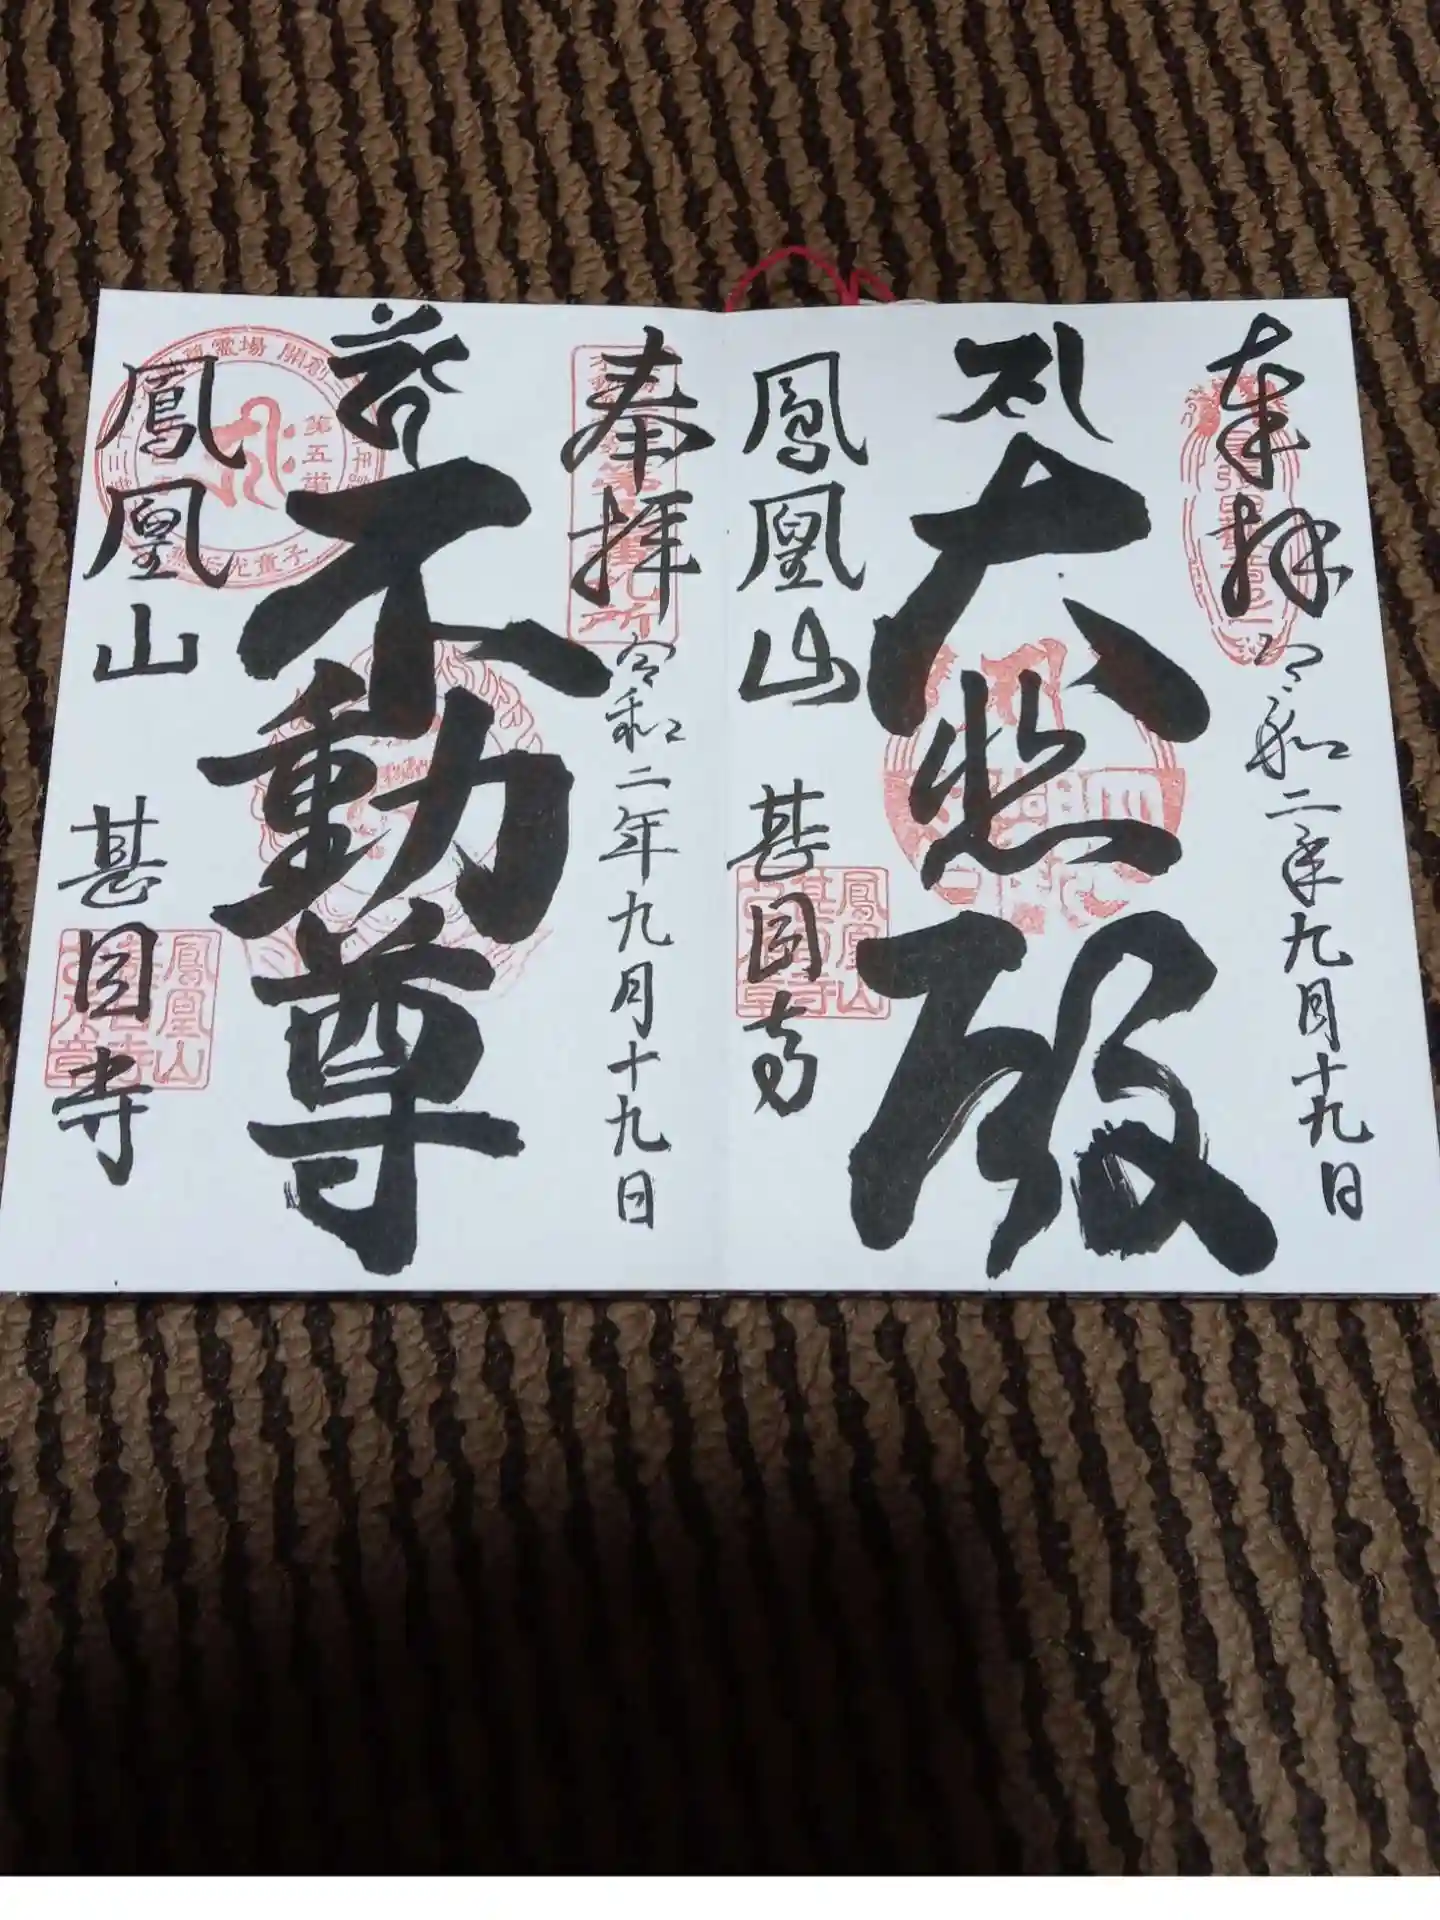 奉拝
令和二年九月十九日
大悲殿
鳳凰山
甚目寺
鳳凰山
奉拝
令和二年九月十九日
不動尊
鳳凰山
甚目寺
霊場 開創
第五番
光童子
鳳凰山